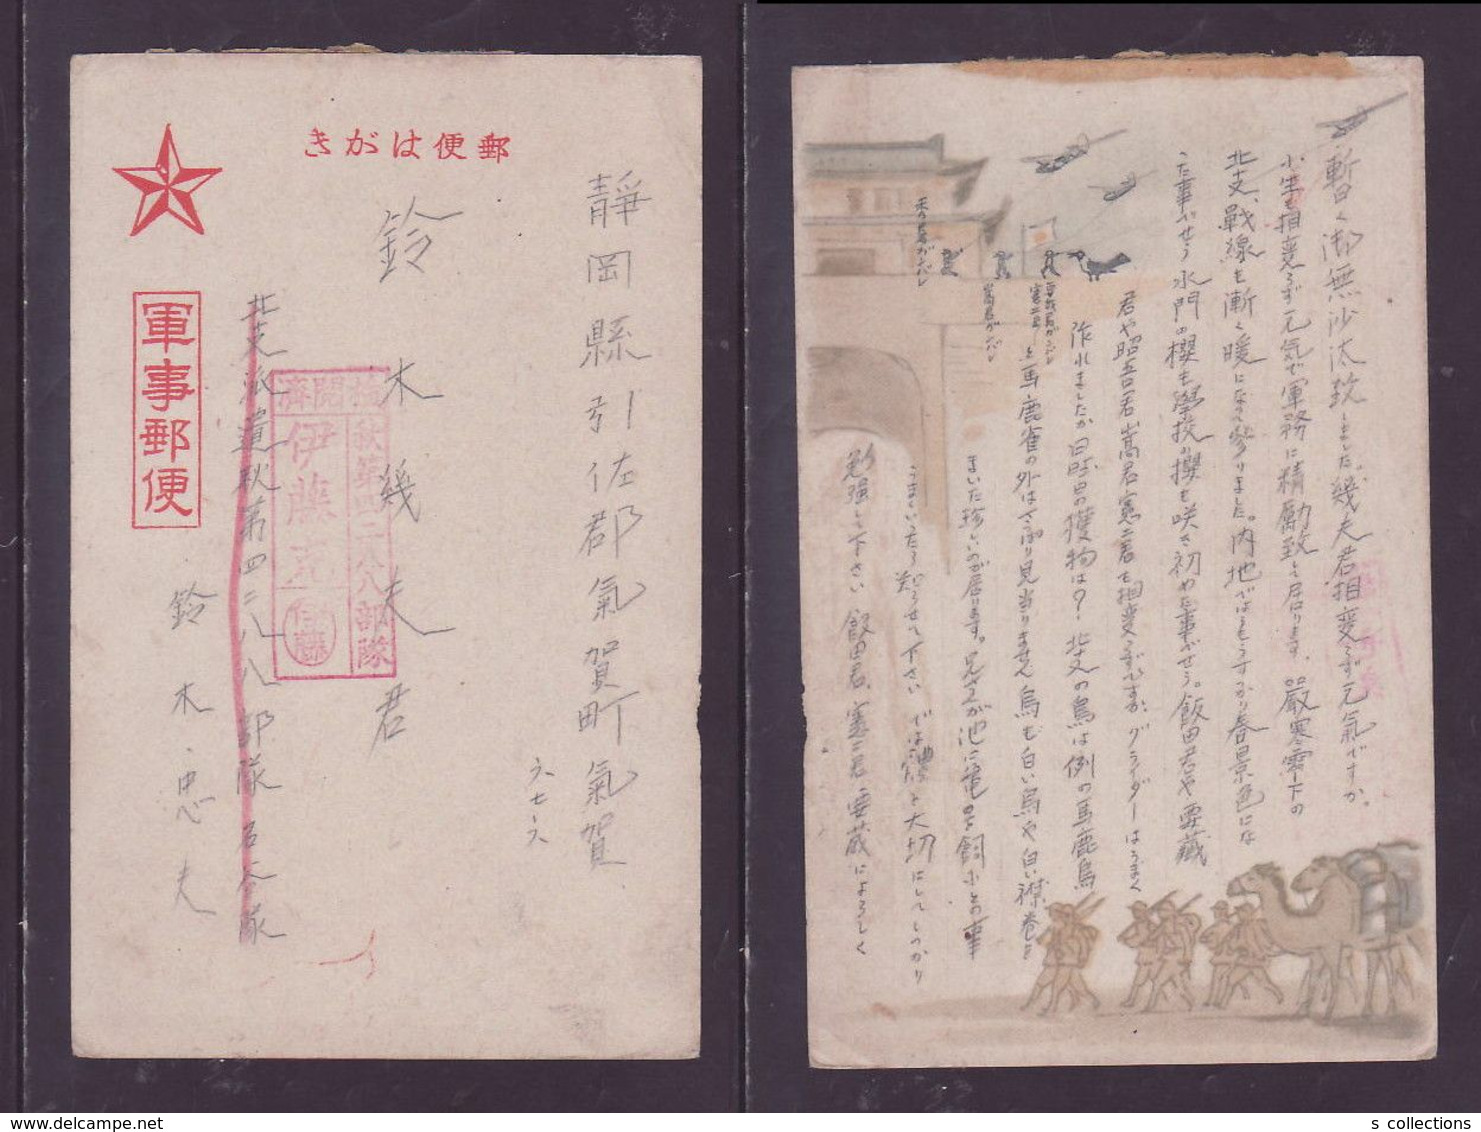 郵便はがき
軍事郵便
靜岡縣引佐郡氣賀町氣賀
六七六
鈴木幾夫君
検閲済
秋第四二八八部隊
伊藤
伊藤
北支派遣秋第四二八八部隊
鈴木忠夫
暫く御無沙汰致しました。幾夫君相変らず元気ですか。
小生も相変らず元気で軍務に精励致して居ります。嚴寒零下の
北支戰線も漸く暖になって參りました。内地ではもうすっかり春景色にな
った事でせう 水門の櫻も學校の櫻も咲き初めた事でせう。飯田君や要藏
君や昭吾君嵩君憲二君も相変らずですか グライダーはうまく
作れましたか 日曜日の獲物は？ 北支の鳥は例の馬鹿鳥
と馬鹿雀の外はさっぱり見当りません 鳥も白い鳥や白い襟巻を
まいた珍しいのが居ります。兄さんが池に亀を飼ふとの事
うまくいったら知らせて下さい では體を大切にしてしっかり
勉強して下さい 飯田君、憲二君、要蔵によろしく
s collections